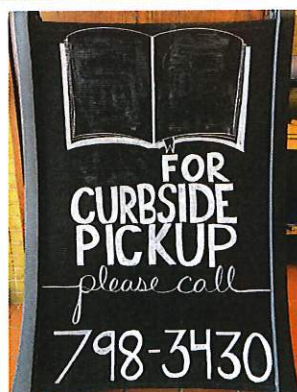 FOR
CURBSIDE
PICKUP
please call
798-3430